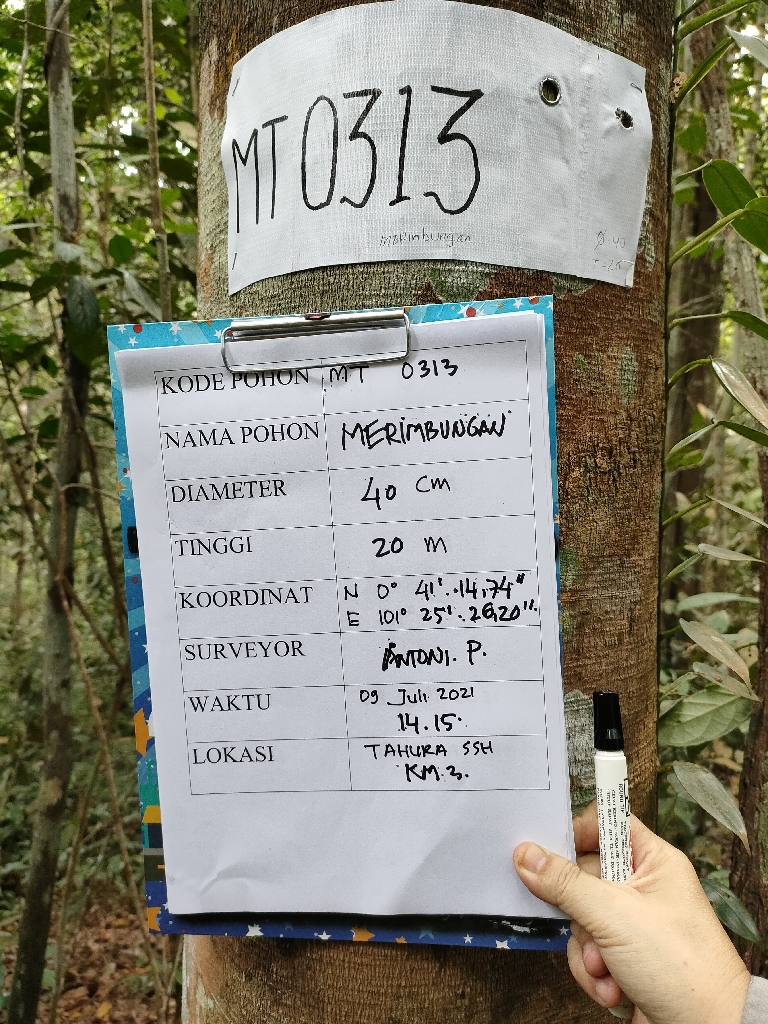 MT 0313
merimbungan
KODE POHON MT 0313
NAMA POHON MERIMBUNGAN
DIAMETER 40 cm
TINGGI 20 m
KOORDINAT N 0° 41'.14,74"
E 101° 25'.26,20".
SURVEYOR ANTONI. P.
WAKTU 09 Juli 2021
14.15.
LOKASI TAHURA SSH
KM.3.